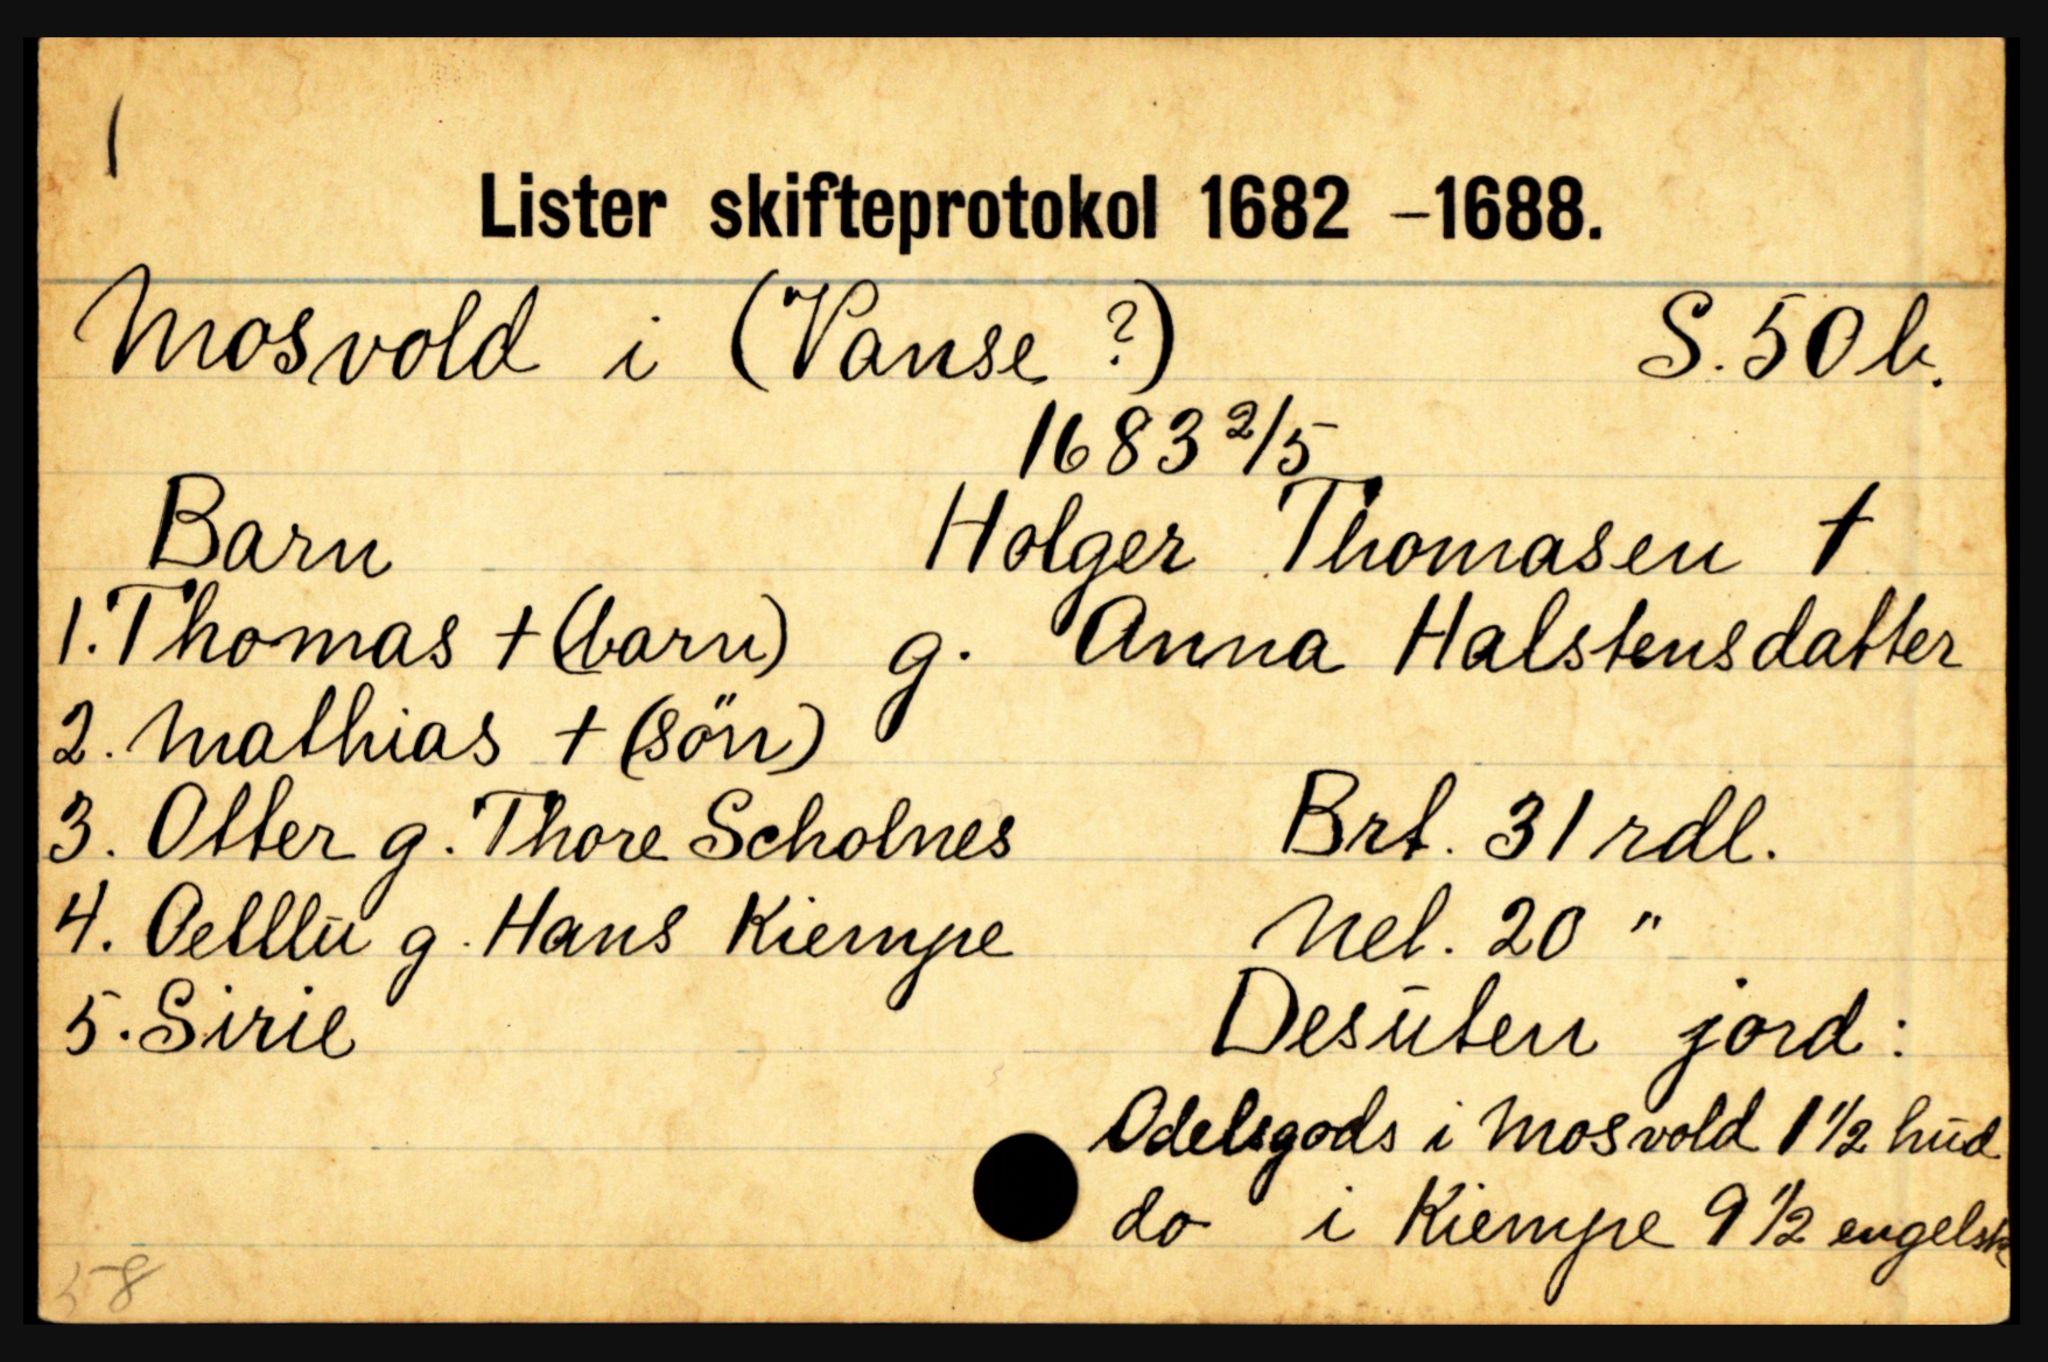 1
Lister skifteprotokol 1682 –1688.
Mosvold i (Vanse ?) S. 50 b.
1683 2/5
Barn Holger Thomasen †
1. Thomas † (barn) g. Anna Halstensdatter
2. Mathias † (sön)
3. Otter g. Thore Scholnes Brt. 31 rdl.
4. g. Hans Kiempe Net. 20 "
5. Sirie Desūten jord:
Odelsgods i Mosvold 1 1/2 hūd
do i Kiempe 9 1/2 engelsk
58